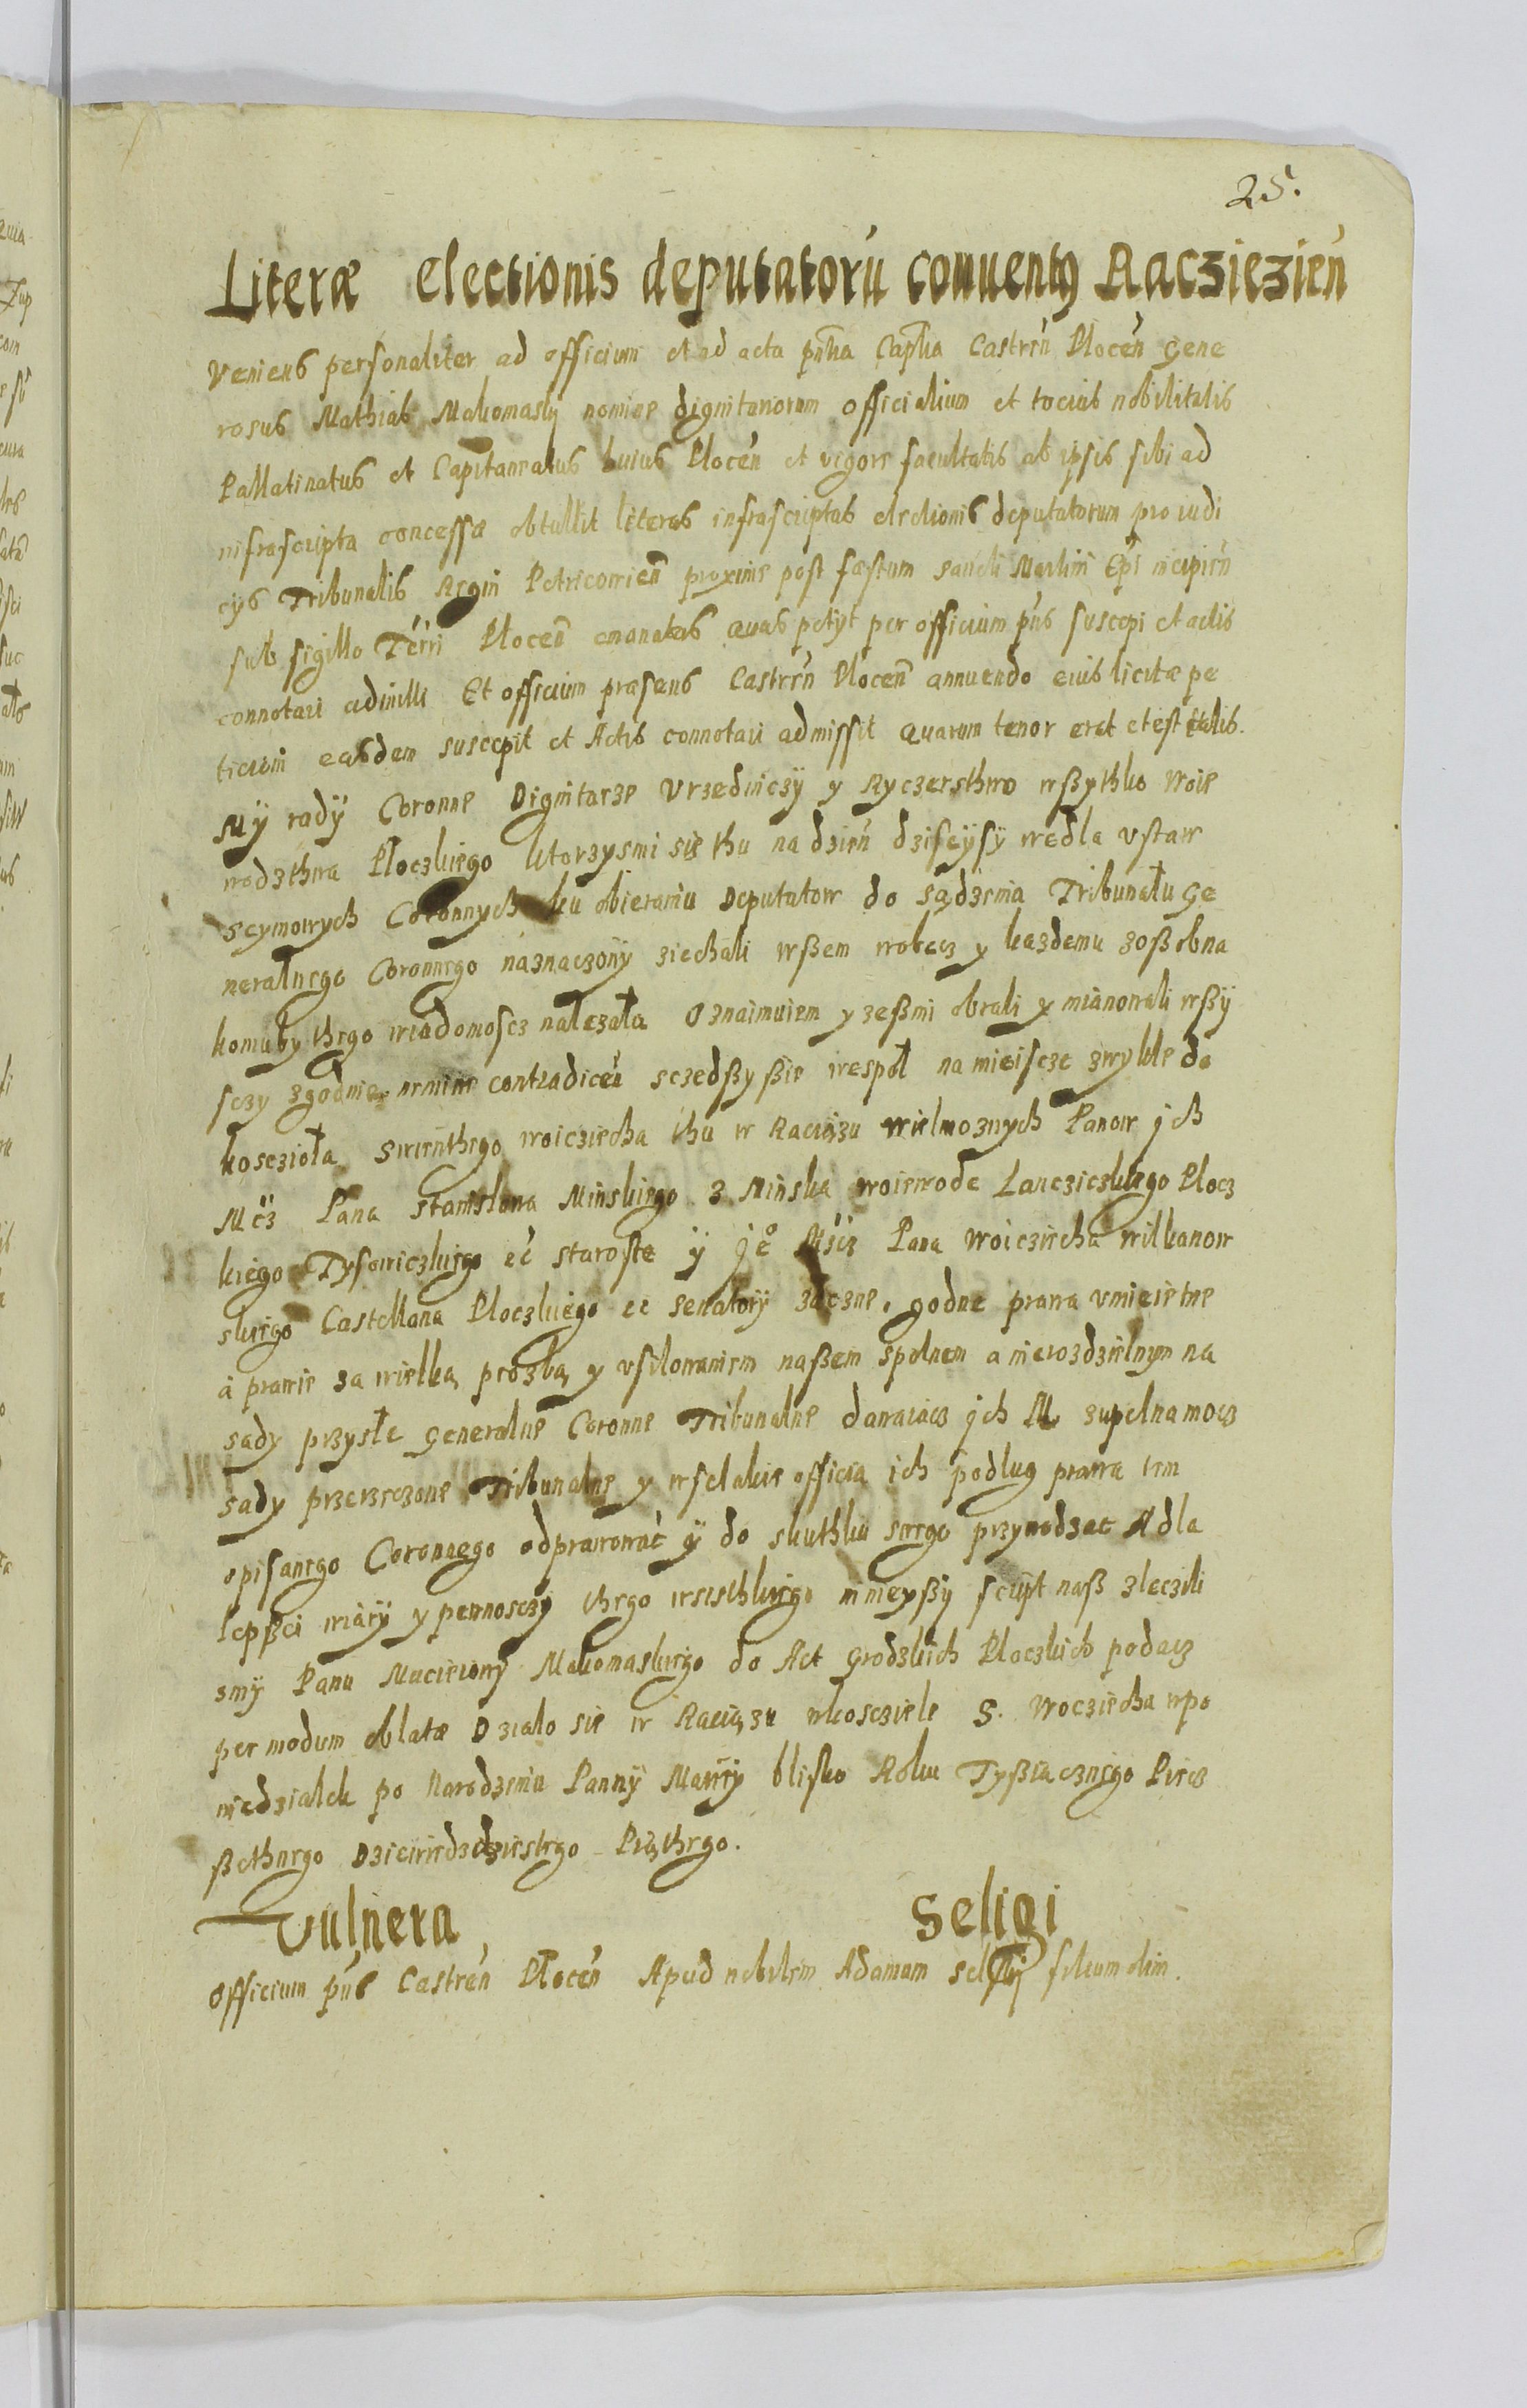 25.
Literæ electionis deputatorú conuentꝰ Racziezień
Veniens personaliter ad officium et ad acta pn̄tia Capt̄lia Castreń Plocén Gene
rosus Mathias Makomasky nomine dignitariorum officialium et tocius nobilitatis
Pallatinatus et Capitaneatus huius Plocén et vigore facultatis ab ipsis sibi ad
infrascripta concessæ obtullit literas infrascriptas electionis deputatorum pro iudi
cys Tribunalis Regni Petricowień proxime post fæstum sancti Martini Ep̄i incipień
sub sigillo Térri Plocen̄ emanatas quas petyt per officium pn̄s suscepi et actis
connotari admitti Et officium præsens Castreń Plocen̄ annuendo eius licitæ pe
ticioni easdem suscepit et Actis connotari admissit Quarum tenor erat et est talis.
My rady Coronne Dignitarze Vrzedniczÿ y Ryczersthwo wßythko Woie
wodzthwa Płoczkiego ktorzysmi się thu na dzień dziseÿsÿ wedla vstaw
Seymowych Coronnych ku obieraniu Deputatow do sądzenia Tribunału Ge
neralnego Coronnego náznaczonÿ ziechali wßem wobecz y kazdemu zoßobna
komuby thego wiadomoscz nałezała Oznaimuiem y zeßmi obrali y mianowali wßÿ
sczy zgodnie nemine contradicen̄ sczedßy ßie wespoł na mieiscze zwykle do
kosczioła Swienthego Woicziecha thu w Raciązu Wielmoznych Panow jch
Mcz Pana Stanisława Minskiego z Minska Woiewode Lancziczkiego Plocz
kiego Tysowiczkiego ec Staroste ÿ Je° Mscz Pana Woicziecha Wilkanow
skiego Castellana Ploczkiego ec Senatorÿ zaczne, godne prawa vmieietne
á prawie za wielką prozbą y vsilowaniem naßem spolnem a nierozdzielnym na
sady przysłe Generalne Coronne Tribunalne dawaiącz jch M zupelna mocz
sady przerzeczone Tribunalne y wselakie officia ich podlug prawa tem
opisanego Coronnego odprawować ÿ do skuthku swego przywodzac A dla
lepßei wiárÿ y pewnosczÿ thego wszsthkiego ninieyßÿ script naß zleczili
smÿ Panu Macieiowÿ Makomaskiego do Act Grodzkich Ploczkich podacz
per modum oblatæ Dzialo sie w Raciązu wkoscziele S. Woczięcha wpo
niedzialek po Narodzeniu Pannÿ Mariÿ blisko Roku Tyßiącznego Piecz
ßethnego Dziewiedzdziesiego Piąthego.
Vulnera Seligi
Officium pn̄s Castrén Płocén Apud nobilem Adamum filium olim.